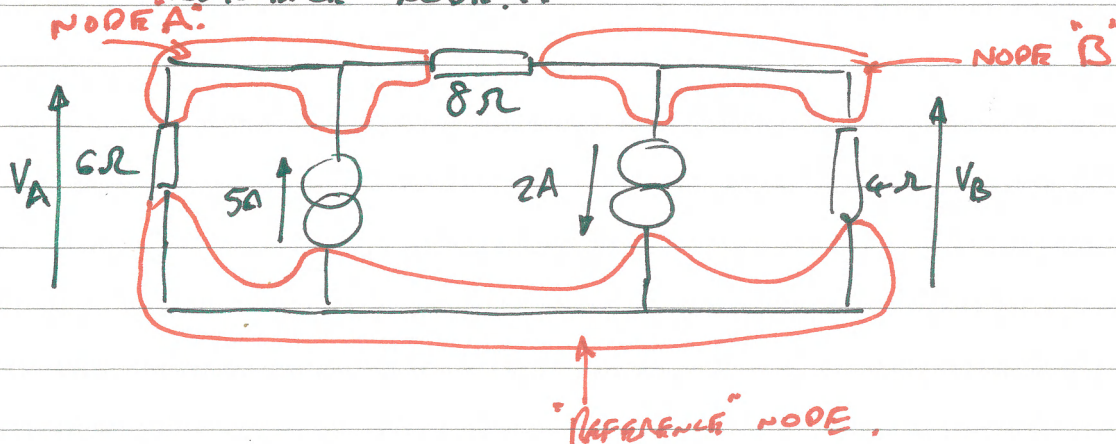 NODE "A".
NODE "B"
8Ω
VA
6Ω
5A
2A
4Ω
VB
"REFERENCE" NODE.